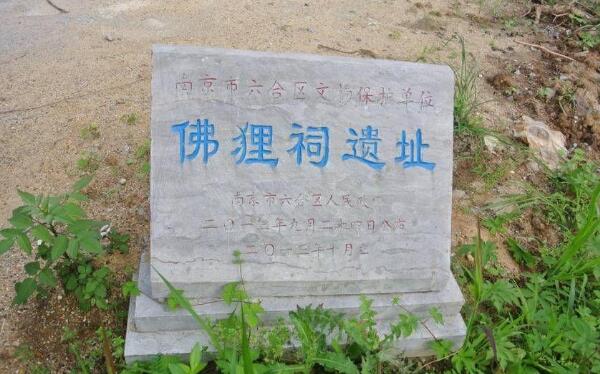 南京市六合区文物保护单位
佛狸祠遗址
南京市六合区人民政府
二〇一二年九月二十四日公布
二〇一二年十月立